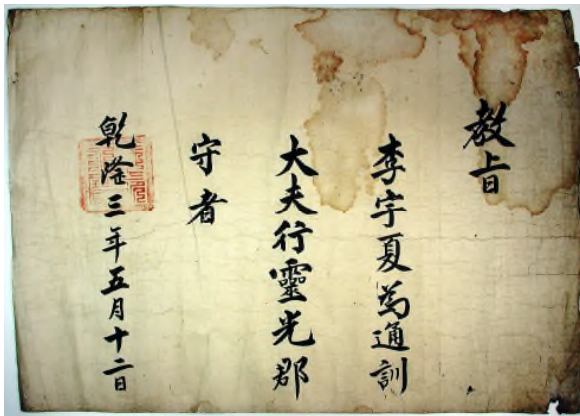 教旨
李宇夏爲通訓
大夫行靈光郡
守者
乾隆三年五月十二日